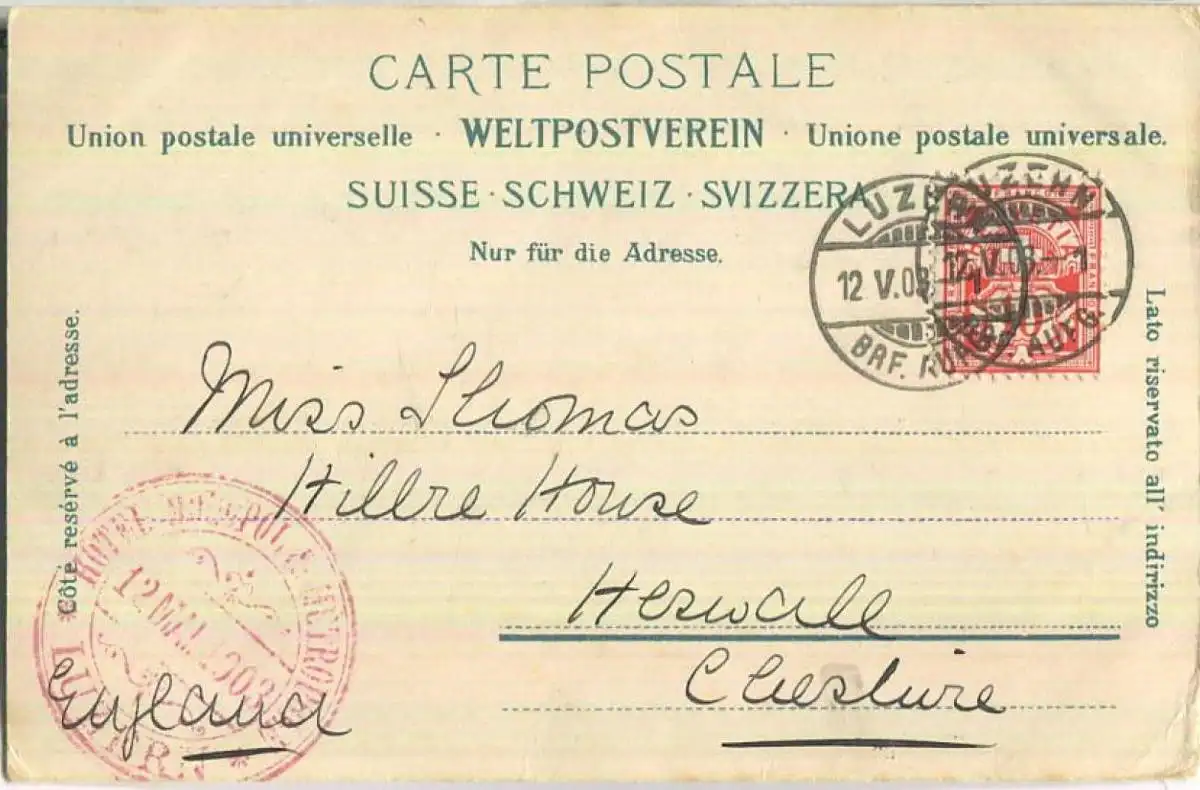 CARTE POSTALE
Union postale universelle · WELTPOSTVEREIN · Unione postale universale.
SUISSE · SCHWEIZ · SVIZZERA
Nur für die Adresse.
LUZERN
12 V.03
BRF.
LUZERN
12.V.03–1
BRF. AUFG.
10
Côté resérvé à l'adresse.
Lato riservato all' indirizzo
Miss Thomas
Hillre House
Heswall
Cheshire
England
HOTEL
12 MAI 1903
LUZERN